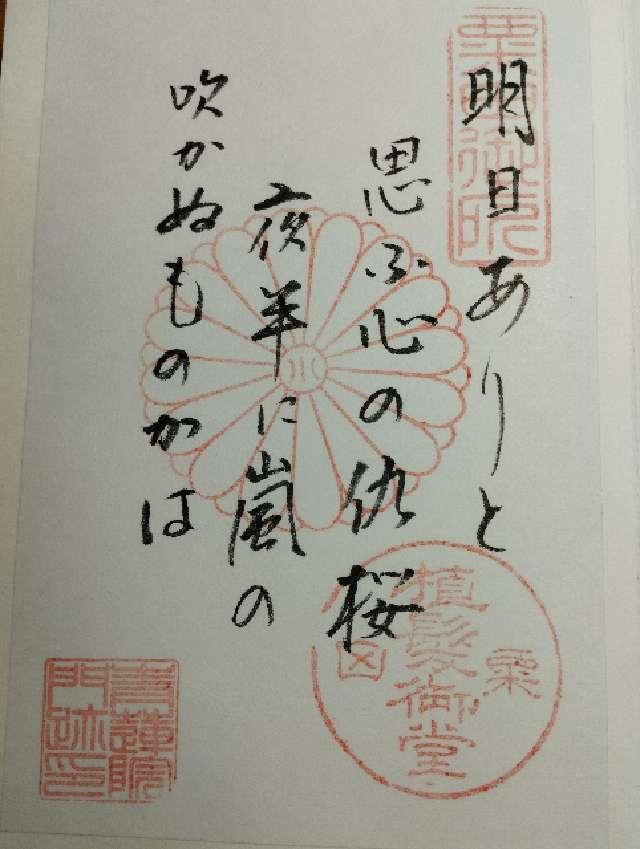 明日ありと
思ふ心の仇桜
夜半に嵐の
吹かぬものかは
植髪御堂
粟
青蓮院
門跡印